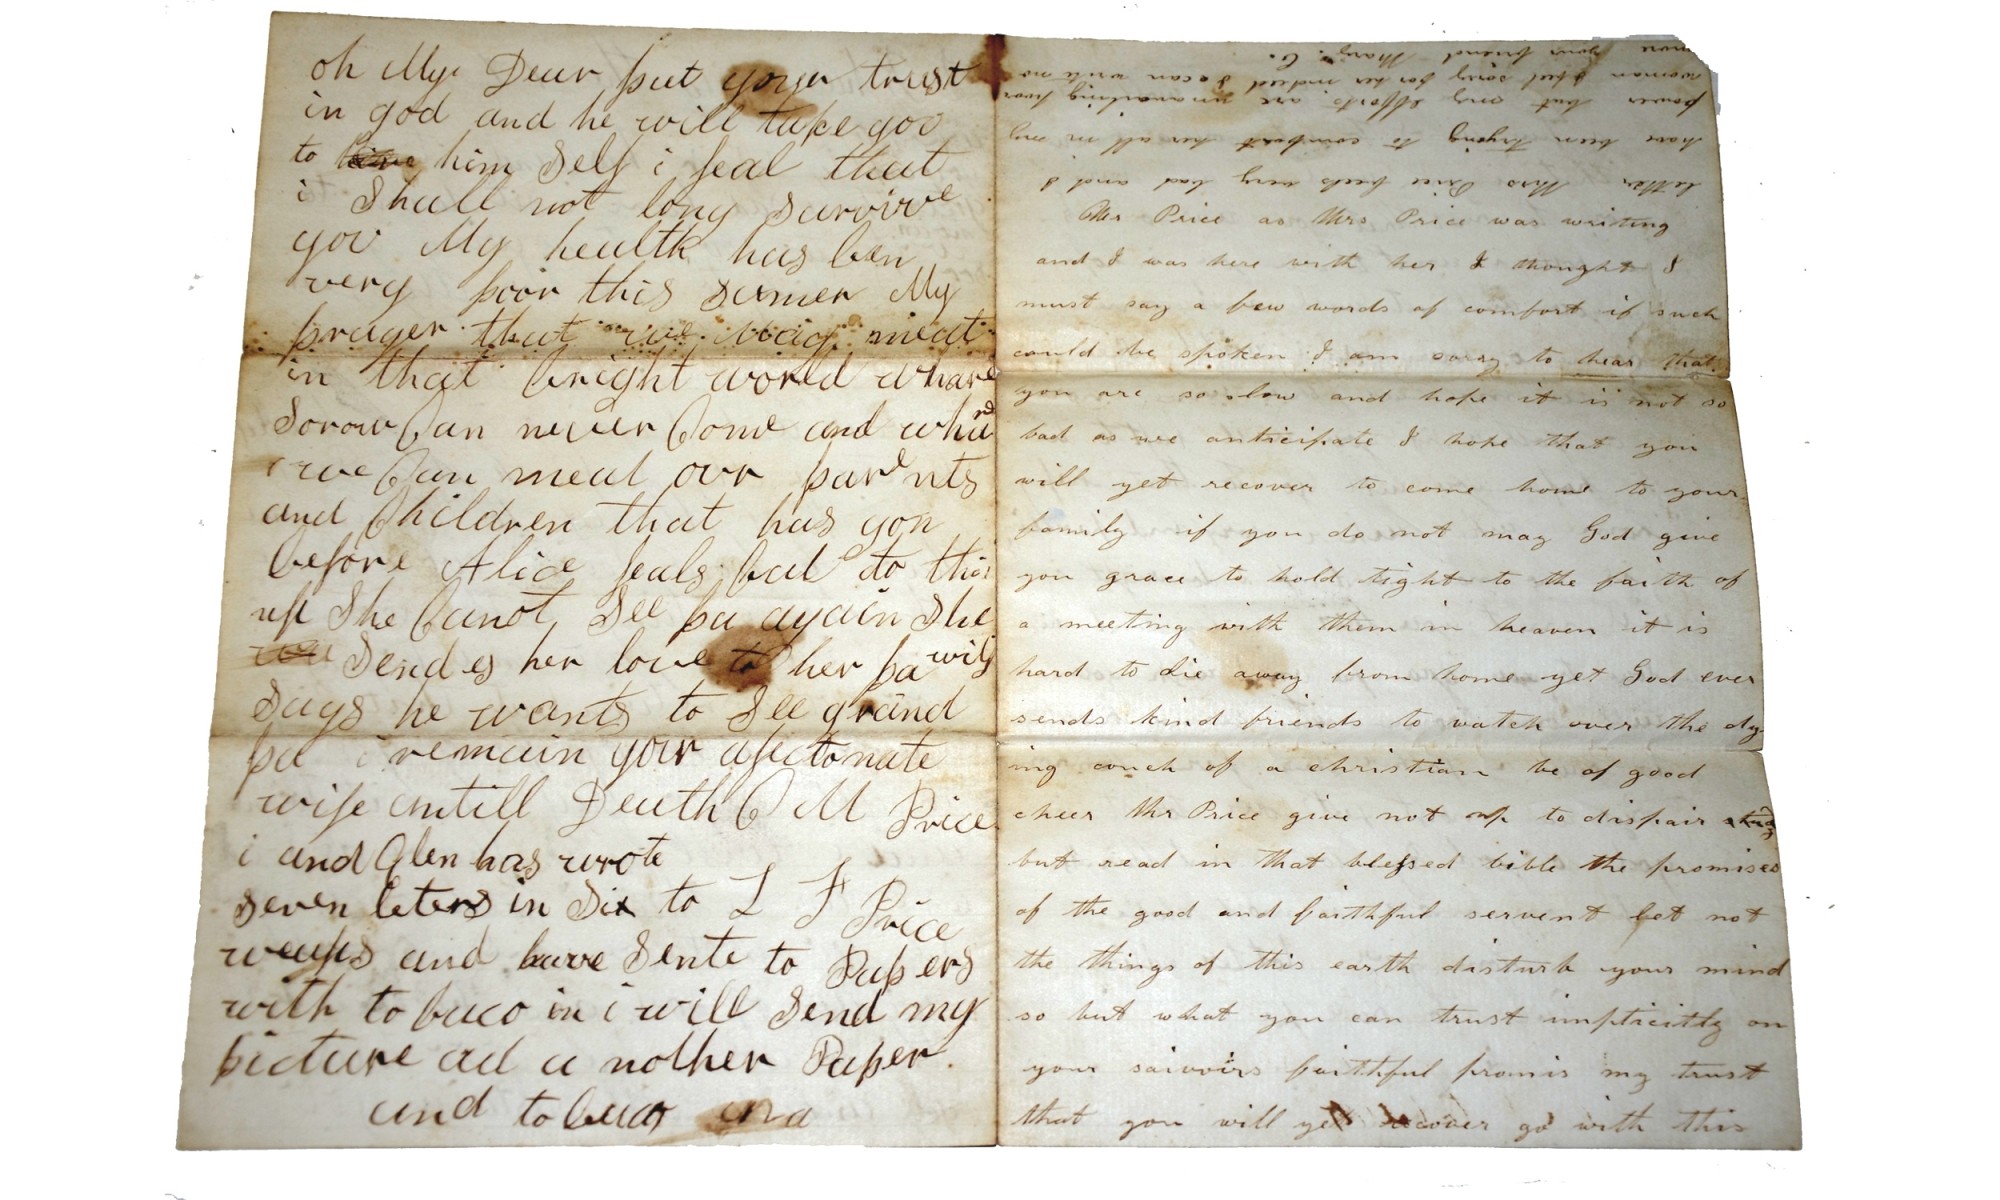 oh My Dear put youer trust
in god and he will take you
to him Self i feal that
i Shall not long Survive
you My health has ben
very poor this Sumer My
prayer that we May meat
in that bright world whare
Sorow Can never Come and whare
we Can meat our parents
and Children that has gon
before Alice feals bad to think
up She Canot See pa again She
Sendes her love to her pa wily
Says he wants to See grand
pa i remain your afectonate
wife untill Death C M Price
i and Glen has wrote
Seven leters in Six to L F Price
weaks and have Sente to Papers
with tobaco in i will Send my
picture ad a nother Paper.
and tobaco and
Mr Price as Mrs Price was writing
and I was here with her I thought I
must say a few words of comfort if such
could be spoken I am sorry to hear that
you are so slow and hope it is not so
bad as we anticipate I hope that you
will yet recover to come home to your
family if you do not may God give
you grace to hold tight to the faith of
a meeting with them in heaven it is
hard to die away from home yet God ever
sends kind friends to watch over the dy
ing couch of a christian be of good
cheer Mr Price give not up to dispair
but read in that blessed bible the promises
of the good and faithful servent let not
the things of this earth disturb your mind
so but what you can trust implicitly on
your saivoirs faithful promis my trust
that you will yet recover go with this
letter Mrs Price feels very bad and I
have been trying to comfort her all in my
power but my efforts are unavailing poor
woman I feel sorry for her indeed I can write no
more your friend Mary. C.